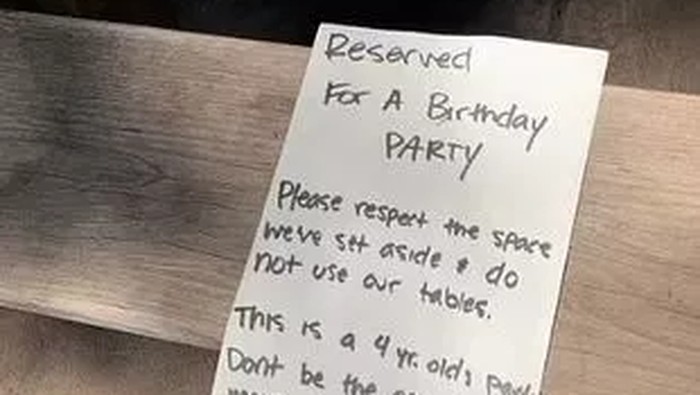 Reserved
For A Birthday
PARTY
Please respect the space
we've set aside & do
not use our tables.
This is a 4 yr. olds
Dont be the